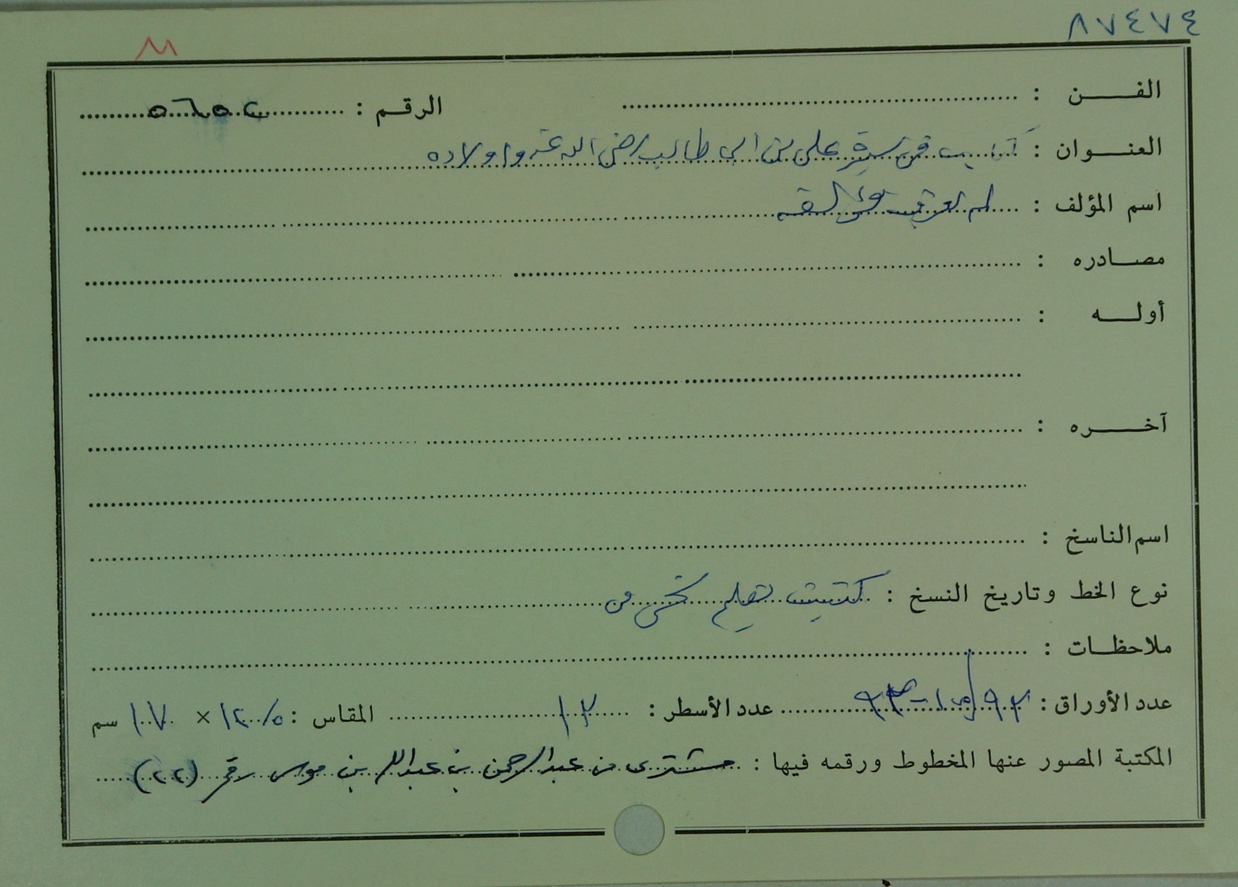 ٨٧٤٧٤
الفن :
الرقم : ٥٦٥٢
العنوان : كتاب في سيرة علي بن ابي طالب رضي الله عنه واولاده
اسم المؤلف : لم نعرف مؤلفه
مصادره :
أوله :
آخره :
اسم الناسخ :
نوع الخط وتاريخ النسخ : كتبت بقلم نسخي
ملاحظات :
عدد الأوراق : ٩٢ عدد الأسطر : ١٢ المقاس : × ١٧ سم
المكتبة المصور عنها المخطوط ورقمه فيها : مشترى من عبدالرحمن بن عبدالله بن موسى رقم (٢٢)